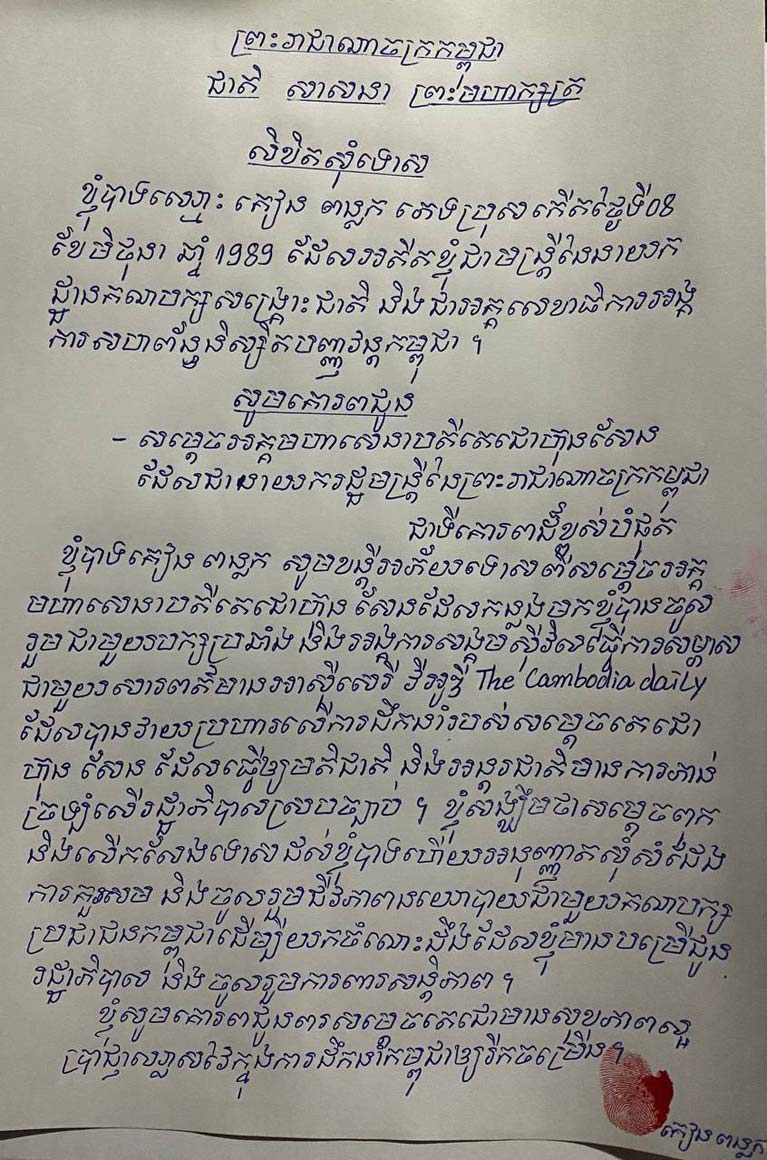 ព្រះរាជាណាចក្រកម្ពុជា
ជាតិ សាសនា ព្រះមហាក្សត្រ
លិខិតសុំទោស
ខ្ញុំបាទឈ្មោះ គឿន ពន្លក ភេទប្រុស កើតថ្ងៃទី08
ខែមិថុនា ឆ្នាំ 1989 ដែលអតីតខ្ញុំជាមន្ត្រីនៃនាយក
ដ្ឋានគណបក្សសង្គ្រោះជាតិ និងជាអគ្គលេខាធិការអង្គ
ការសហព័ន្ធនិស្សិតបញ្ញវន្តកម្ពុជា ។
សូមគោរពជូន
- សម្ដេចអគ្គមហាសេនាបតីតេជោហ៊ុនសែន
ដែលជានាយករដ្ឋមន្ត្រីនៃព្រះរាជាណាចក្រកម្ពុជា
ជាទីគោរពដ៏ខ្ពស់បំផុត
ខ្ញុំបាទគឿន ពន្លក សូមខន្តីអភ័យទោសពីសម្ដេចអគ្គ
មហាសេនាបតីតេជោហ៊ុន សែនដែលកន្លងមកខ្ញុំបានចូល
រួមជាមួយបក្សប្រឆាំង និងអង្គការសង្គមស៊ីវិលធ្វើការសម្ភាស
ជាមួយសារពត៌មានអាស៊ីសេរី វីអូឌី The Cambodia daily
ដែលបានវាយប្រហារលើការដឹកនាំរបស់សម្ដេចតេជោ
ហ៊ុន សែន ដែលធ្វើឲ្យមតិជាតិ និងអន្តរជាតិមានការភាន់
ច្រឡំលើរដ្ឋាភិបាលស្របច្បាប់ ។ ខ្ញុំសង្ឃឹមថាសម្ដេចពុក
និងលើកលែងទោសដល់ខ្ញុំបាទហើយអនុញ្ញាតសុំសំដែង
ការគួរសម និងចូលរួមជីវភាពនយោបាយជាមួយគណបក្ស
ប្រជាជនកម្ពុជាដើម្បីយកចំណេះដឹងដែលខ្ញុំមានបម្រើជូន
រដ្ឋាភិបាល និងចូលរួមការពារសន្តិភាព ។
ខ្ញុំសូមគោរពជូនពរសម្ដេចតេជោមានសុខភាពល្អ
ប្រាជ្ញាឈ្លាសវៃក្នុងការដឹកនាំកម្ពុជាឲ្យរីកចម្រើន ។
គឿន ពន្លក